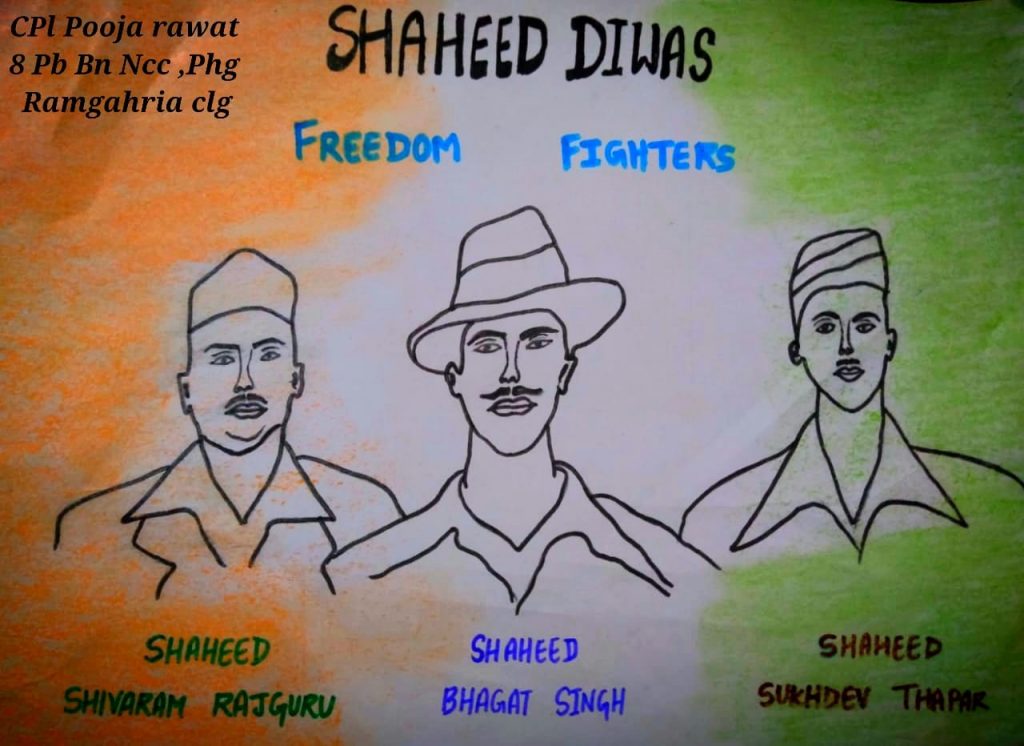 CPl Pooja rawat
8 Pb Bn Ncc ,Phg
Ramgahria clg
SHAHEED DIWAS
FREEDOM FIGHTERS
SHAHEED
SHIVARAM RAJGURU
SHAHEED
BHAGAT SINGH
SHAHEED
SUKHDEV THAPAR